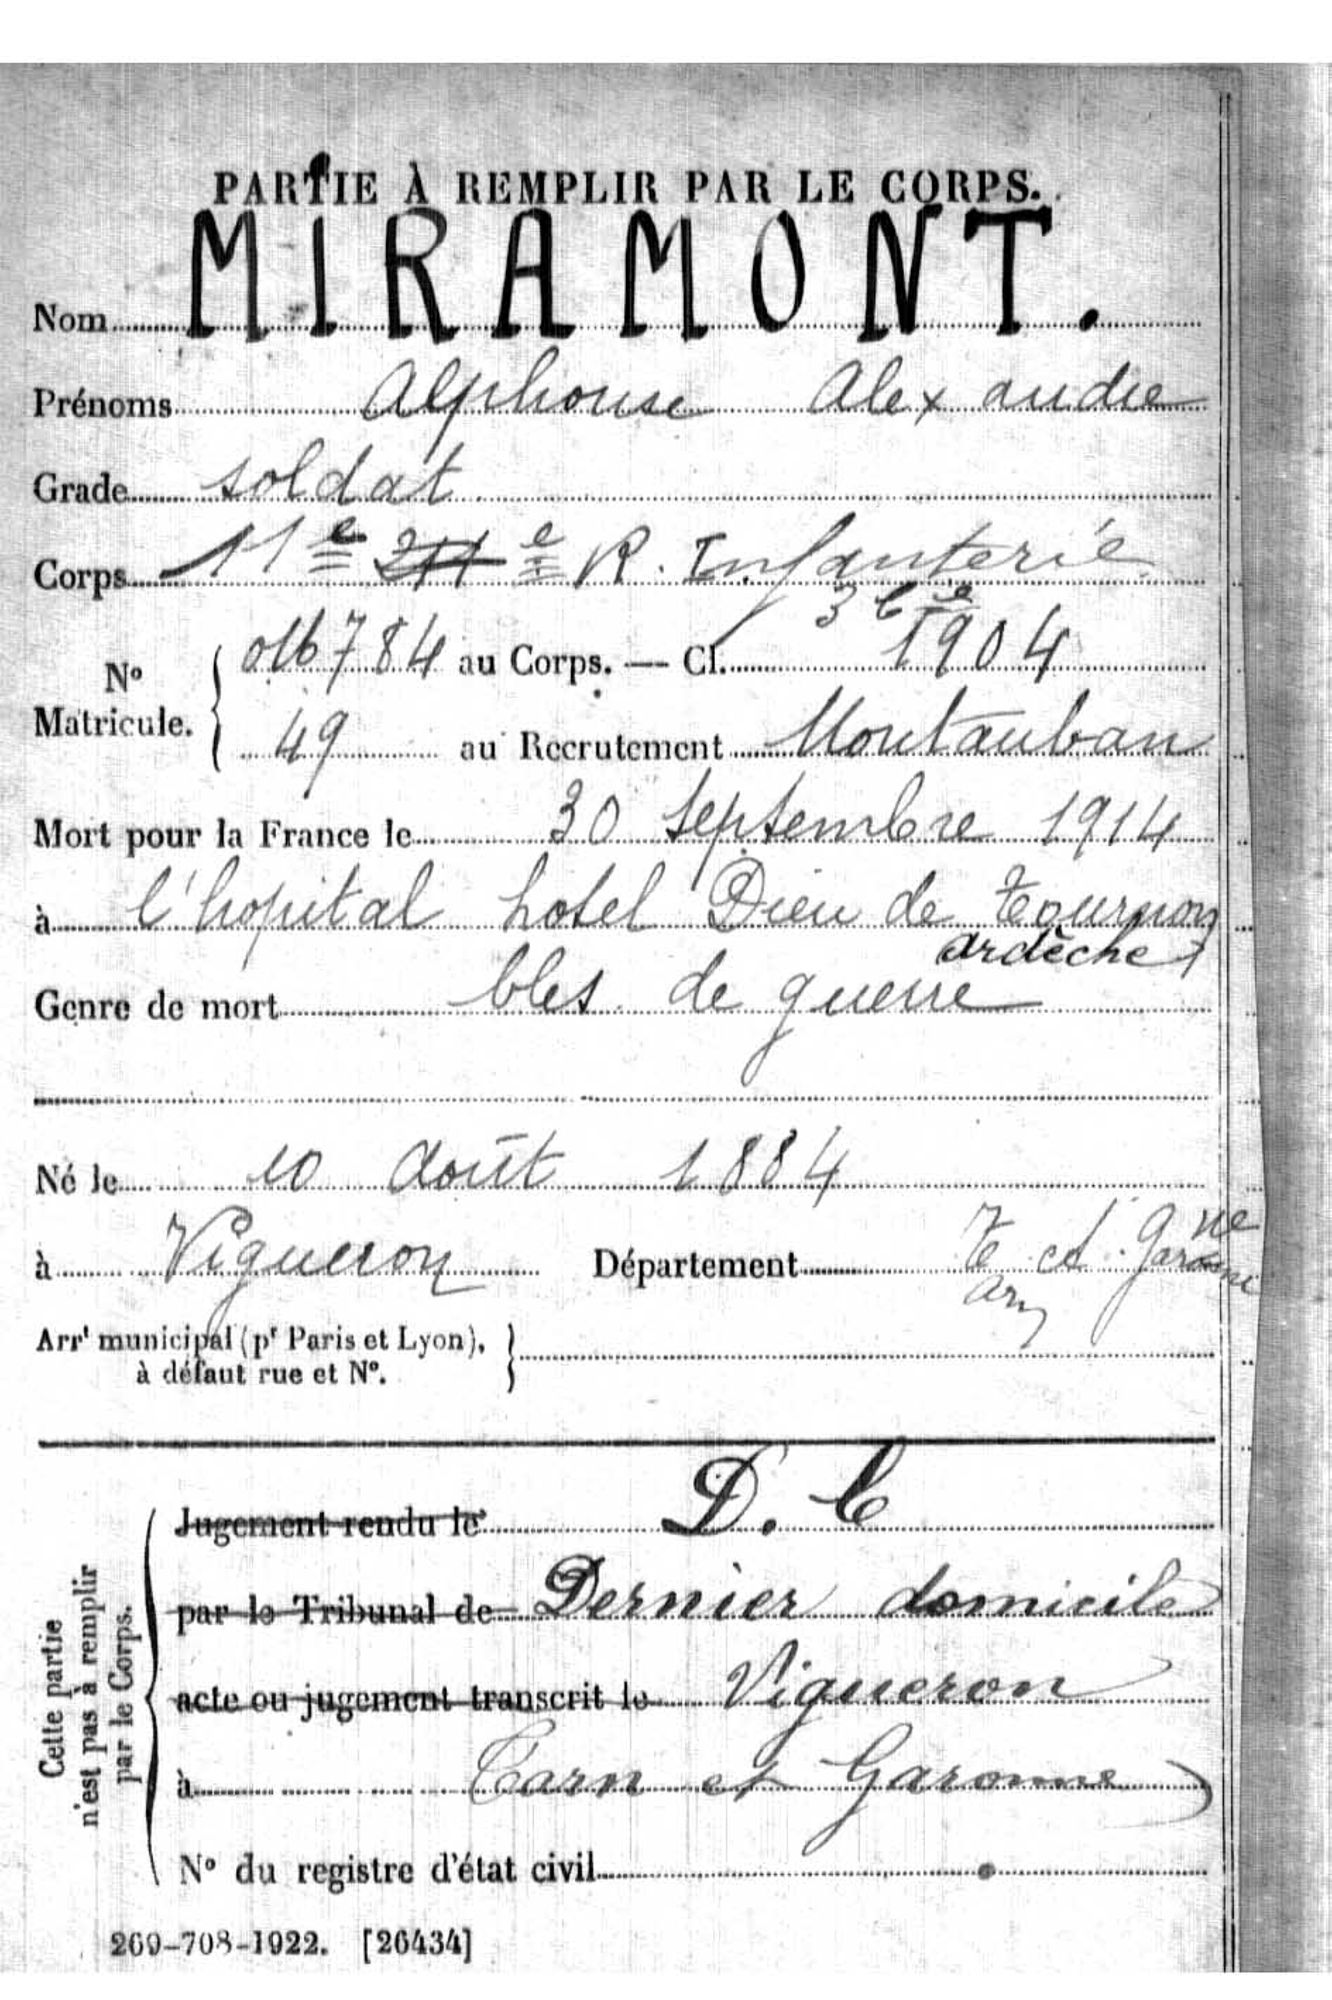 PARTIE À REMPLIR PAR LE CORPS.
Nom MIRAMONT.
Prénoms Alphonse Alexandre
Grade soldat
Corps 11e 211 e R. Infanterie
3 Cie
No Matricule. 016784 au Corps. — Cl. 1904
49 au Recrutement Montauban
Mort pour la France le 30 septembre 1914
à l'hopital hotel Dieu de Tournon
ardèche
Genre de mort bles de guerre
Né le 10 août 1884
à Vigueron Département T et Garonne
Arrt municipal (pr Paris et Lyon),
à défaut rue et No.
Cette partie
n'est pas à remplir
par le Corps.
Jugement rendu le D. C
par le Tribunal de Dernier domicile
acte ou jugement transcrit le Vigueron
à Tarn et Garonne
No du registre d'état civil
269-708-1922. [26434]